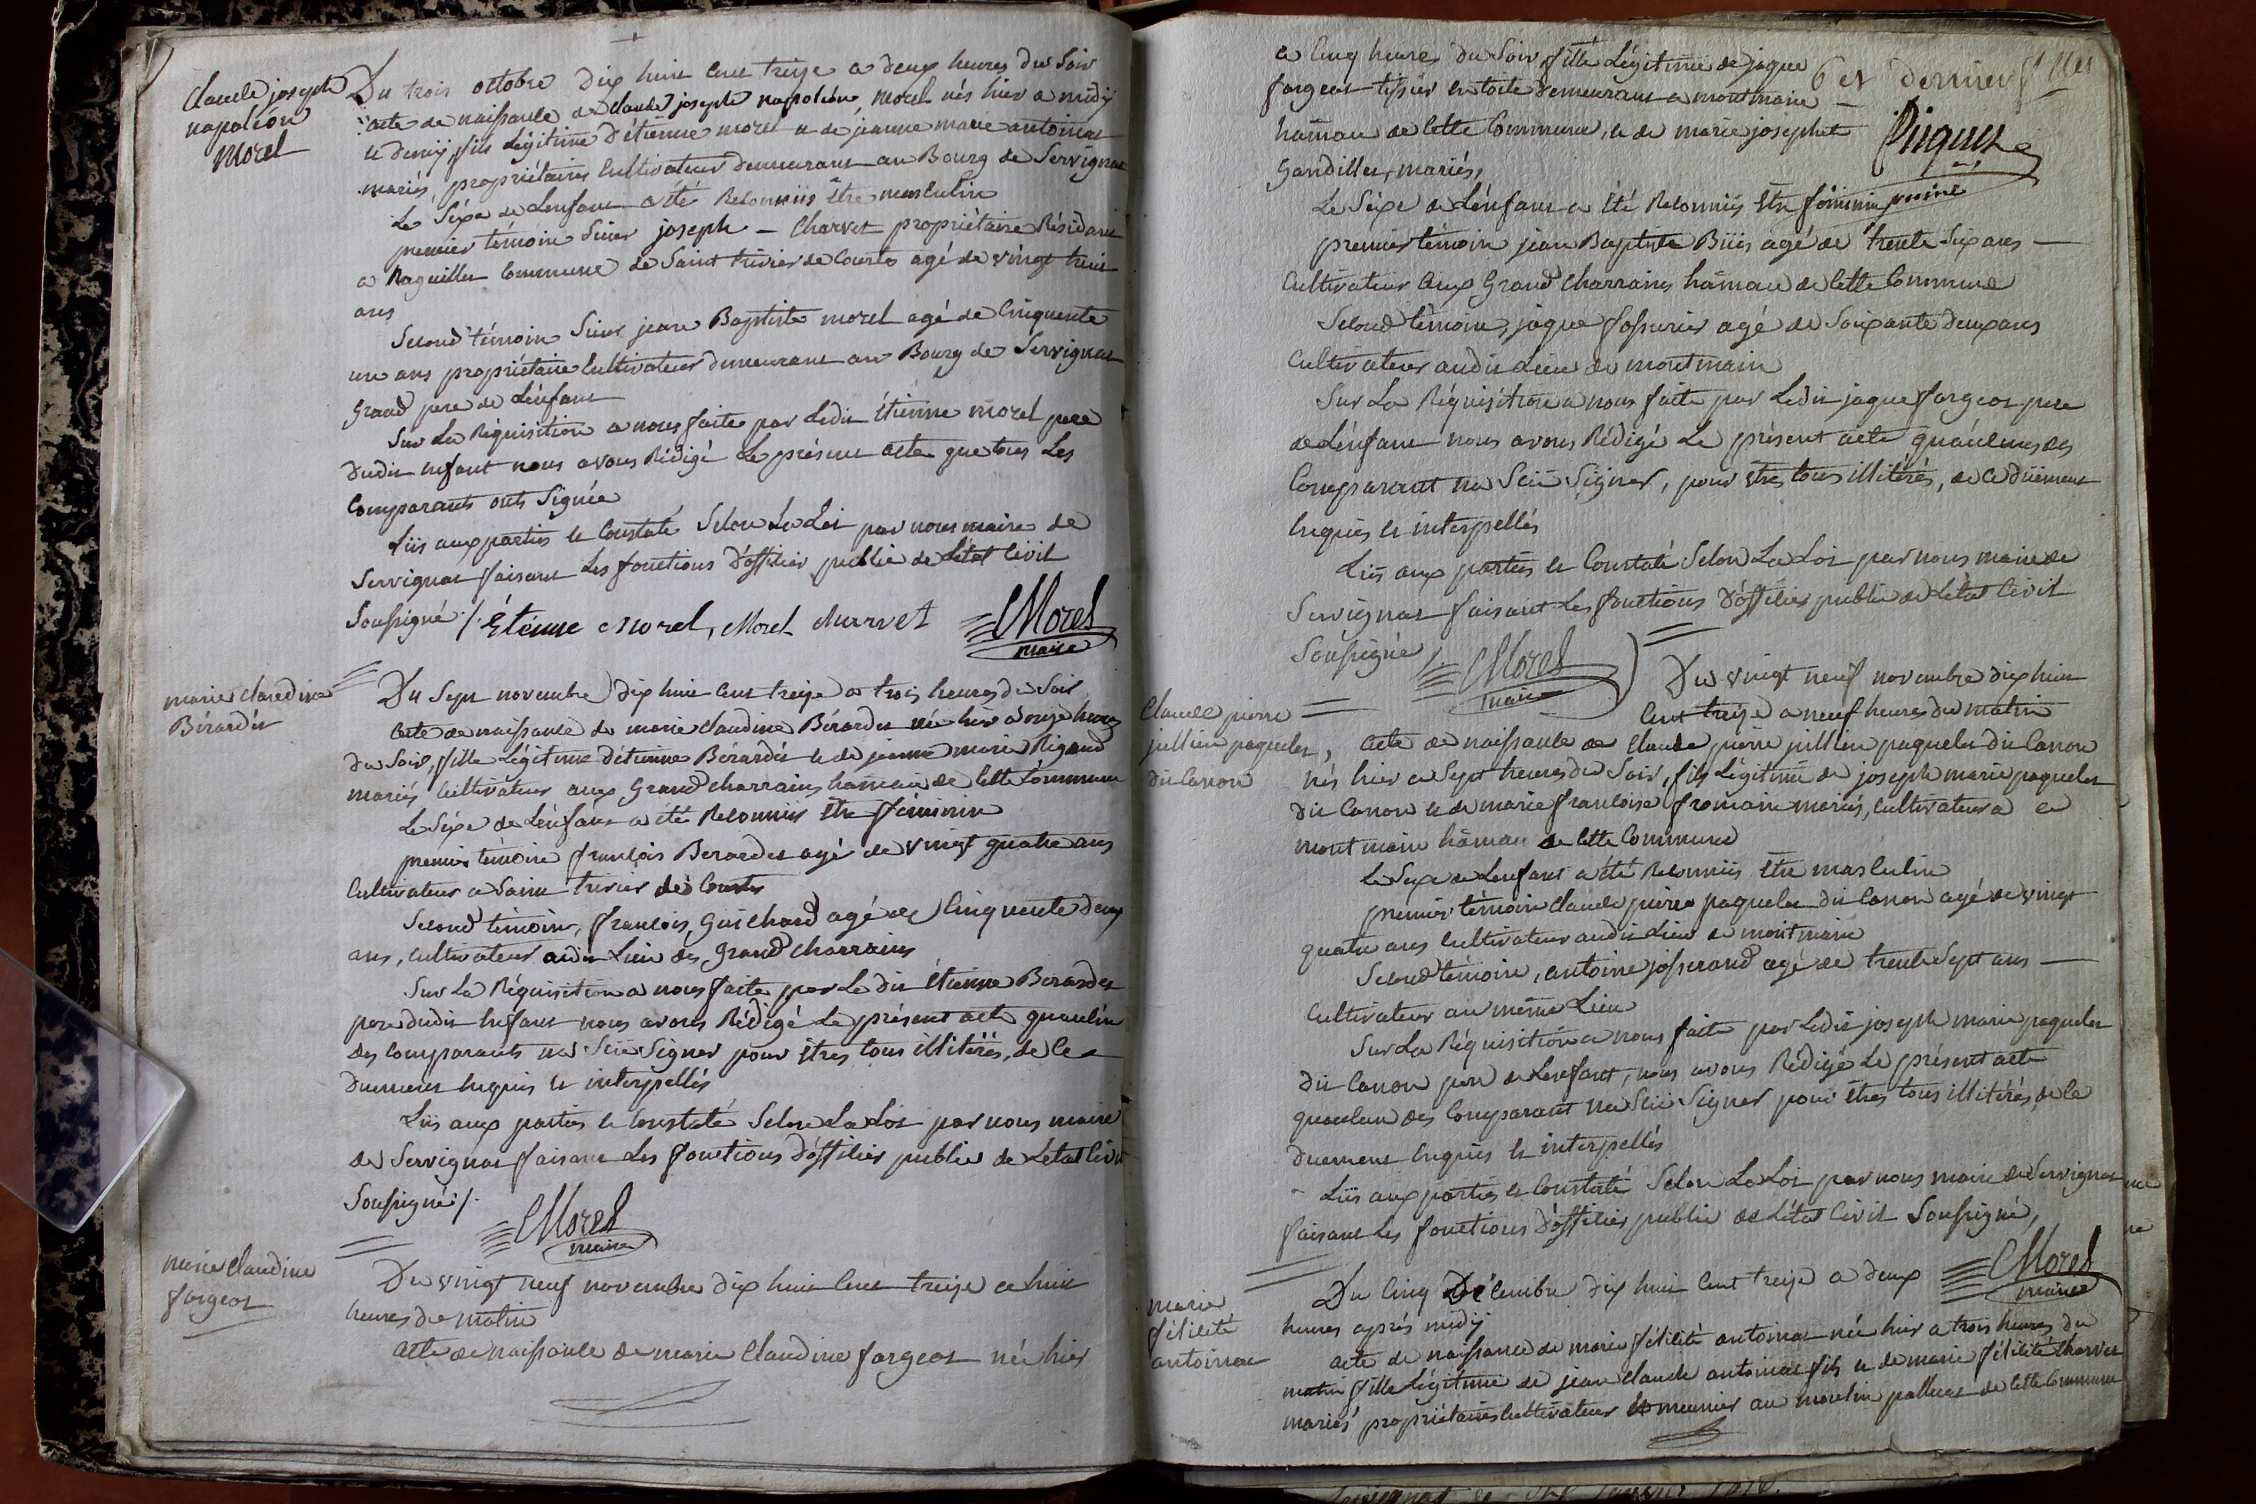 Claude joseph
napoléon
Morel
Du trois octobre dix huit cent treize a deux heures du Soir
acte de naissance de claude joseph napoléon Morel nés hier a midÿ
et demÿ, fils Légitime d'étienne morel et de jeanne marie antoinat
mariés, propriétaires Cultivateur demeurant au Bourg de Servignat
Le Séxe de Lenfant a été Reconnüs être masculin
premier témoin Sieur joseph – Charvet propriétaire Résidant
a Raguiller Commune de Saint trivier de Courtes agé de vingt huit
ans
Second témoin Sieur jean Baptiste morel agé de Cinquente
un ans propriétaire Cultivateur demeurant au Bourg de Servignat
Grand pere de Lénfant
Sur La Réquisition a nous faite par Ledit étienne morel pere
dudit enfant nous avons Rédigé Le présent acte que tous Les
Comparants onts Signée
Lüs aux parties et Constaté Selon La Loi par nous maire de
Servignat faisant Les fonctions d'officier public de Létat Civil
Soussigné /. Étienne Morel, Morel charvet CMorel
maire
marie claudine
Bérardet
Du Sept novembre dix huit cent treize a trois heures du Soir
Acte de naissance de marie claudine Bérardet née hier a onze heures
du Soir, fille Légitime d'étienne Bérardet et de jeanne marie Rigaud
mariés Cultivateur aux Grand charrains hâmeau de Cette Commune
Le Séxe de Lénfant a été Reconnüs être féminin
premier témoin françois Berardet agé de vingt quatre ans
Cultivateur a Saint trivier de Courtes
Second témoin, françois, Guichard agé de Cinquente deux
ans, Cultivateur audit Lieu des Grand charrains
Sur La Réquisition a nous faite par Le dit Étienne Berardet
pere dudit Enfant nous avons Rédigé Le présent acte quaucun
des Comparants na Seü Signer pour êtres tous illitérés, de Ce
duement Enquis et interpellés
Lüs aux parties et Constaté Selon La Loi par nous maire
de Servignat faisant Les fonctions d'officier public de Létat Civil
Soussigné /. CMorel
maire
marie claudine
forgeot
Du vingt neuf novembre dix huit Cent treize a huit
heures du matin
Acte de naissance de marie Claudine forgeot née hier
a Cinq heures du Soir, fille Légitime de jaque
forgeot tissier en toile demeurant a montmain
hâmeau de Cette Commune, et de marie josephet
Gandillet, mariés,
6 et dernier
Piquet
Le Séxe de Lénfant a été Reconnüs être féminin
premier témoin jean Baptiste Büis agé de trente Six ans —
Cultivateur aux Grand charrains hâmeau de Cette Commune
Second témoin, jaque fossurier agé de Soixante deux ans
Cultivateur audit Lieu de montmain
Sur La Réquisition a nous faite par Ledit jaque forgeot pere
de Lénfant nous avons Rédigé Le présent acte quaucuns des
Comparant na Seü Signer, pour êtres tous illitérés, de Ce düement
Enquis et interpellés
Lüs aux parties et Constaté Selon La Loi par nous maire de
Servignat faisant Les fonctions d'officier public de Létat Civil
Soussigné / CMorel
maire
Claude pierre
jullien paquelet
dit Canon
Du vingt neuf novembre dix huit
Cent treize a neuf heures du matin
Acte de naissance de Claude pierre jullien paquelet dit Canon
nés hier a Sept heures du Soir, fils Légitime de joseph marie paquelet
dit Canon et de marie francoise fromain mariés, Cultivateur a
mont main hâmeau de Cette Commune
Le Sexe de Lenfant a été Reconnüs être masculin
premier témoin claude pierre paquelet dit Canon agé de vingt
quatre ans Cultivateur audit Lieu de montmain
Second témoin, antoine josserand agé de trente Sept ans —
Cultivateur au même Lieu
Sur La Réquisition a nous faite par Ledit joseph marie paquelet
dit Canon pere de Lenfant, nous avons Rédigé Le présent acte
quaucun des Comparant na Seü Signer pour êtres tous illitérés, de Ce
duement Enquis et interpellés
Lüs aux parties et Constaté Selon La Loi par nous maire de Servignat
faisant Les fonctions d'officier public de Létat Civil Soussigné,
CMorel
maire
marie
félicité
antoinat
Du Cinq Décembre dix huit Cent treize a deux
heures aprés midÿ
Acte de naissance de marie félicité antoinat née hier a trois heures du
matin fille Légitime de jean claude antoinat fils et de marie félicité Charvet
mariés propriétaires Cultivateur et meunier au moulin palluat de Cette Commune